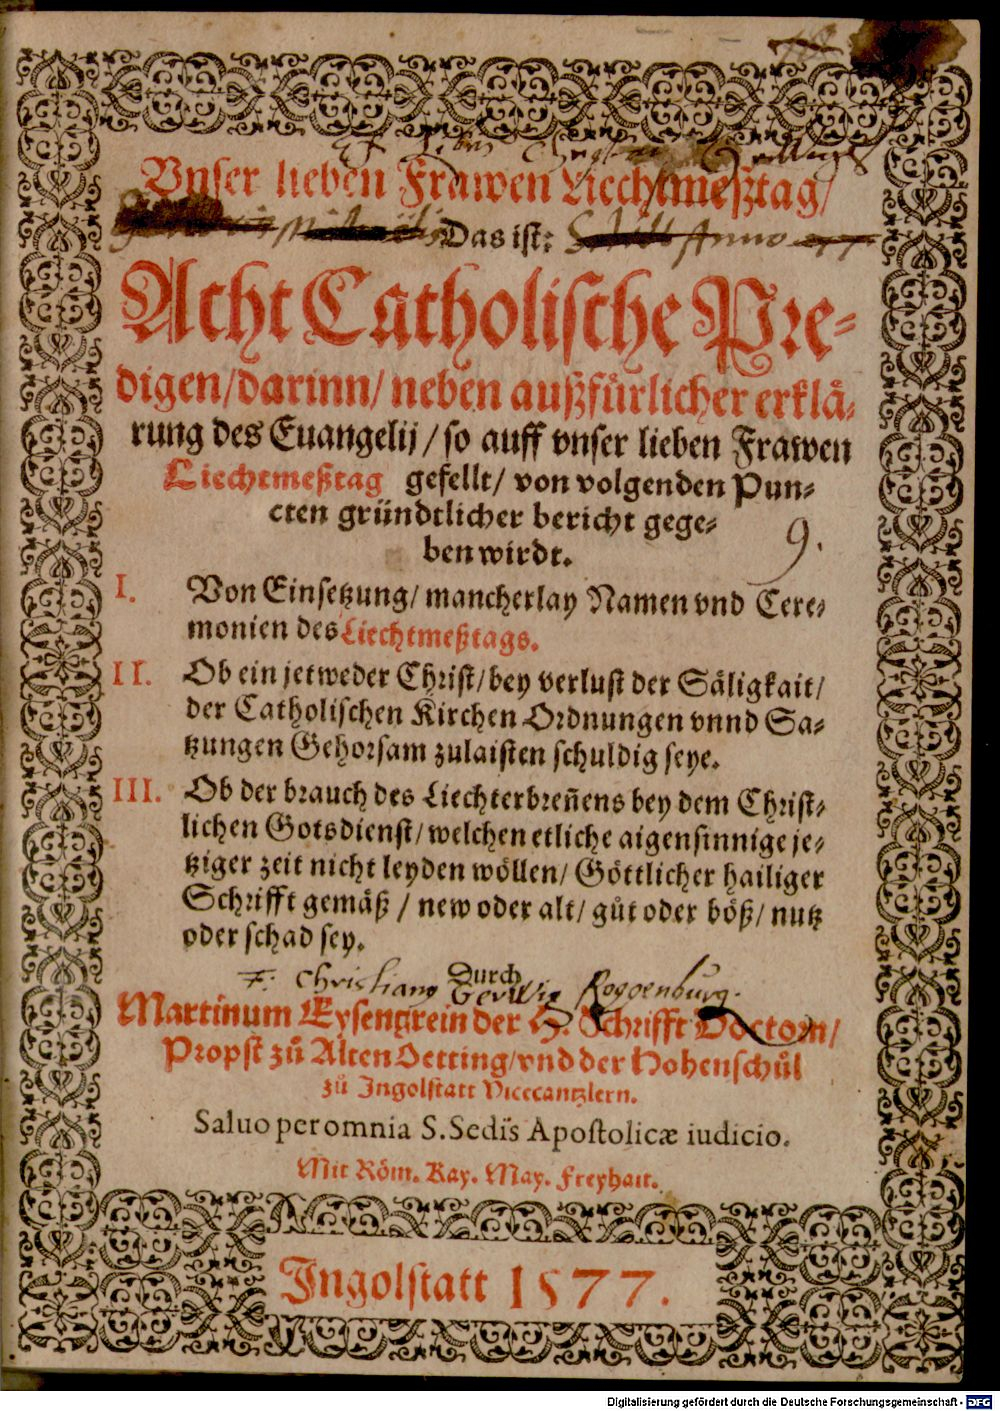 Vnser lieben Frawen Liechtmeßtag/
Das ist: Anno
Acht Catholische Pre-
digen/darinn/ neben außfürlicher erklå-
rung des Euangelij/so auff vnser lieben Frawen
Liechtmeßtag gefellt/ von volgenden Pun-
cten gründtlicher bericht gege-
ben wirdt.
9.
I. Von Einsetzung/ mancherlay Namen vnd Cere-
monien des Liechtmeßtags.
II. Ob ein jetweder Christ/bey verlust der Såligkait/
der Catholischen Kirchen Ordnungen vnnd Sa-
tzungen Gehorsam zulaisten schuldig seye.
III. Ob der brauch des Liechterbreñens bey dem Christ-
lichen Gotsdienst/welchen etliche aigensinnige je-
tziger zeit nicht leyden wöllen/ Göttlicher hailiger
Schrifft gemäß / new oder alt/ gůt oder böß/ nutz
oder schad sey.
Durch
F. Christiang Gerwig Roggenburg.
Martinum Eysengrein der H. Schrifft Doctorn/
Propst zů Alten Oetting/vnd der Hohenschůl
zů Ingolstatt Vicecantzlern.
Saluo per omnia S. Sedis Apostolicæ iudicio.
Mit Röm. Kay. May. Freyhait.
Ingolstatt 1577.
Digitalisierung gefördert durch die Deutsche Forschungsgemeinschaft - DFG